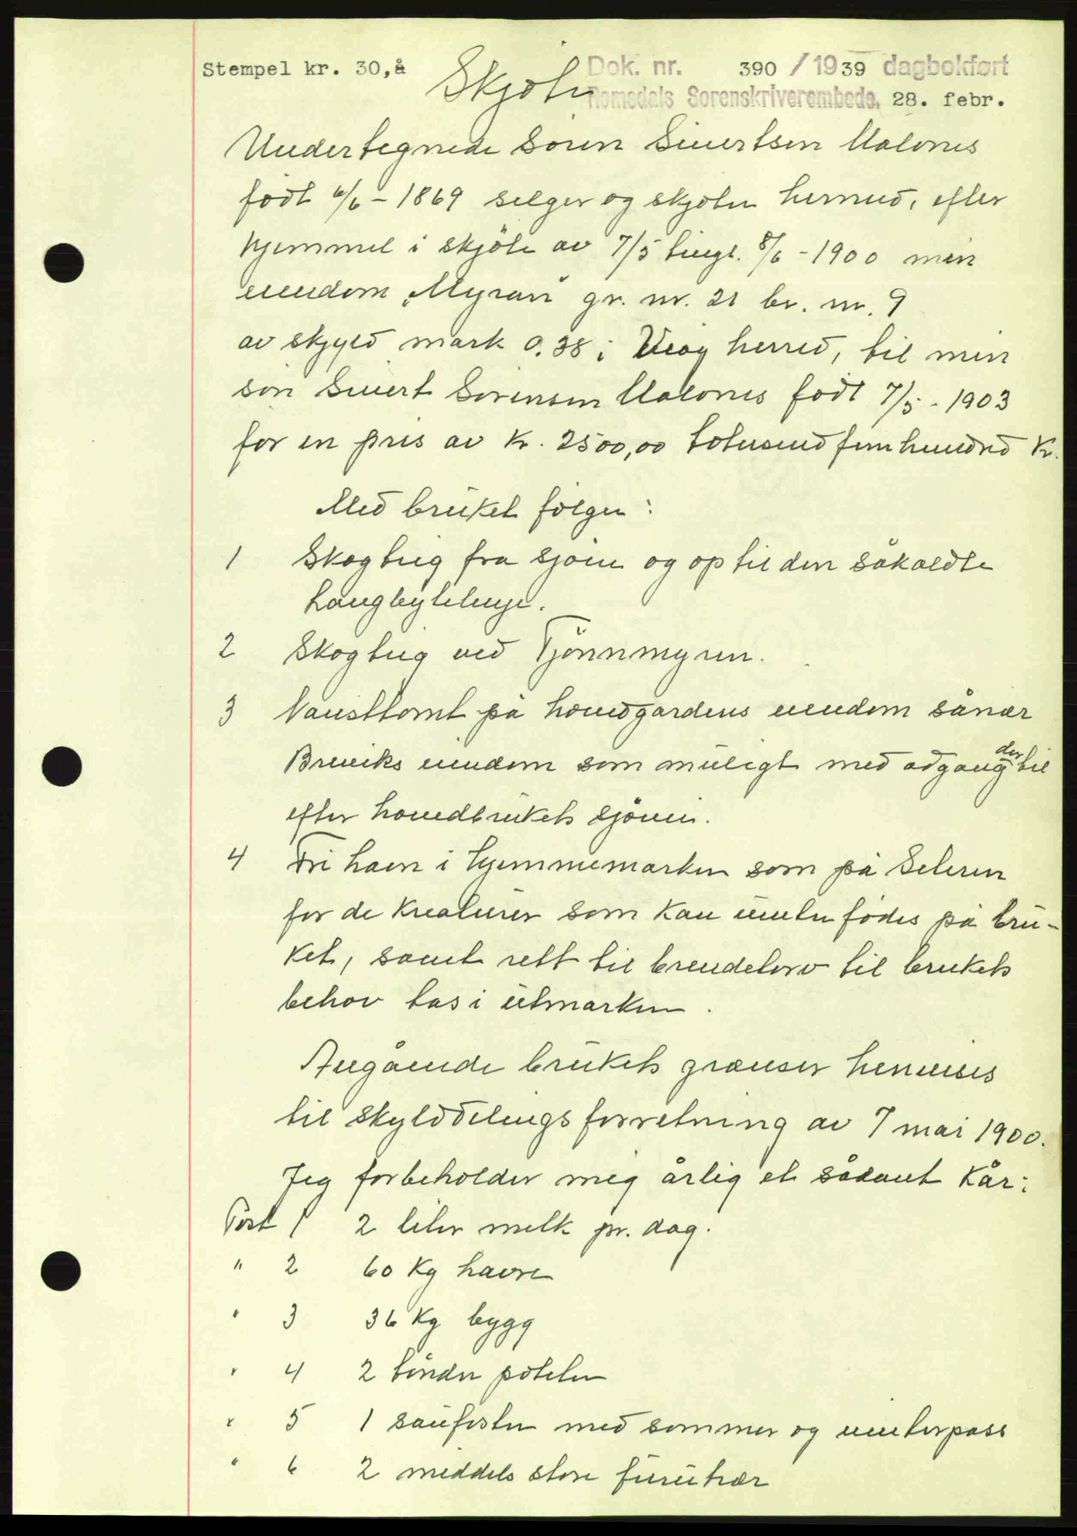 Stempel kr. 30,å
Dok. nr. 390 / 1939 dagbokført
Romsdals Sorenskriverembede, 28. febr.
Skjöte
Undertegnede Sören Sivertsen Malones
födt 6/6 - 1869 selger og skjöter herved, efter
hjemmel i skjöte av 7/5 tingl. 8/6 - 1900 min
eiendom "Myran" gr. nr. 21 br. nr. 9
av skyld mark 0.38 i Veöy herred, til min
sön Sivert Sörensen Malones födt 7/5 - 1903
for en pris av kr. 2500,00 totusendfemhundred kr.
Med bruket fölger:
1 Skogteig fra sjöen og op til den såkaldte
2 Skogteig ved Tjönnmyren.
3 Nausttomt på hovedgardens eiendom så nær
Breviks eiendom som muligt med adgang der til
efter hovedbrukets sjövei.
4 Fri havn i hjemmemarken som på Seteren
for de kreaturer som kan vinterfödes på bru-
ket, samt rett til brendetorv til brukets
behov tas i utmarken.
Angående brukets grænser henvises
til skylddelingsforretning av 7 mai 1900.
Jeg forbeholder mig årlig et sådant kår:
Post 1 2 liter melk pr. dag.
" 2 60 Kg havre
" 3 36 Kg bygg
" 4 2 tönder poteter
" 5 1 saufoster med sommer og vinterpass
" 6 2 middels store furutrær